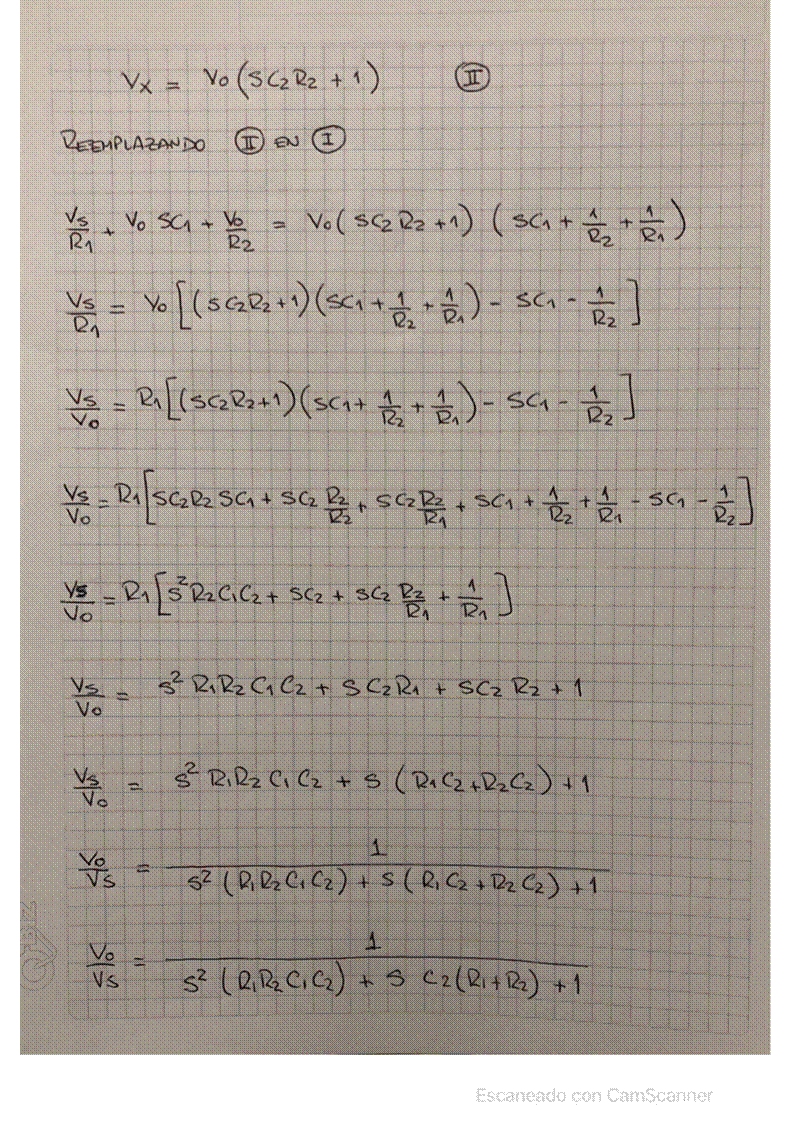 Vx = Vo (SC2R2 + 1) II
REEMPLAZANDO II EN I
Vs/R1 + Vo SC1 + Vo/R2 = Vo (SC2R2 + 1) (SC1 + 1/R2 + 1/R1)
Vs/R1 = Vo [(SC2R2+1)(SC1 + 1/R2 + 1/R1) - SC1 - 1/R2]
Vs/Vo = R1 [(SC2R2+1)(SC1 + 1/R2 + 1/R1) - SC1 - 1/R2]
Vs/Vo = R1 [SC2R2 SC1 + SC2 R2/R2 + SC2 R2/R1 + SC1 + 1/R2 + 1/R1 - SC1 - 1/R2]
Vs/Vo = R1 [S²R2C1C2 + SC2 + SC2 R2/R1 + 1/R1]
Vs/Vo = S² R1R2 C1 C2 + S C2R1 + SC2 R2 + 1
Vs/Vo = S² R1R2 C1 C2 + S (R1C2+R2C2) + 1
Vo/Vs = 1 / S² (R1R2C1C2) + S (R1C2+R2C2) + 1
Vo/Vs = 1 / S² (R1R2C1C2) + S C2(R1+R2) + 1
Escaneado con CamScanner